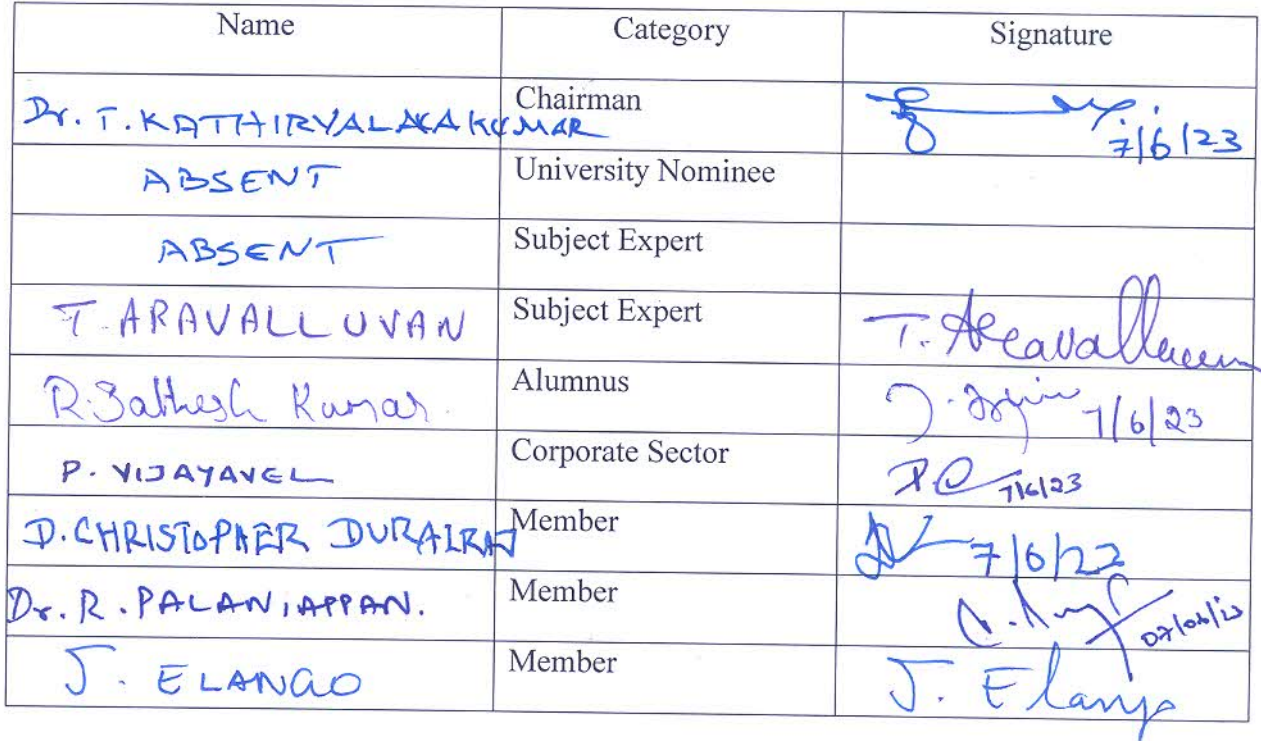 Name Category Signature
Dr. T. KATHIRVALAVAKUMAR Chairman 7/6/23
ABSENT University Nominee
ABSENT Subject Expert
T. ARAVALLUVAN Subject Expert T. Aravalluvan
R. Sathesh Kumar. Alumnus 7/6/23
P. VIJAYAVEL Corporate Sector 7/6/23
D. CHRISTOPHER DURAIRAJ Member 7/6/22
Dr. R. PALANIAPPAN. Member
J. ELANGO Member J. Elango